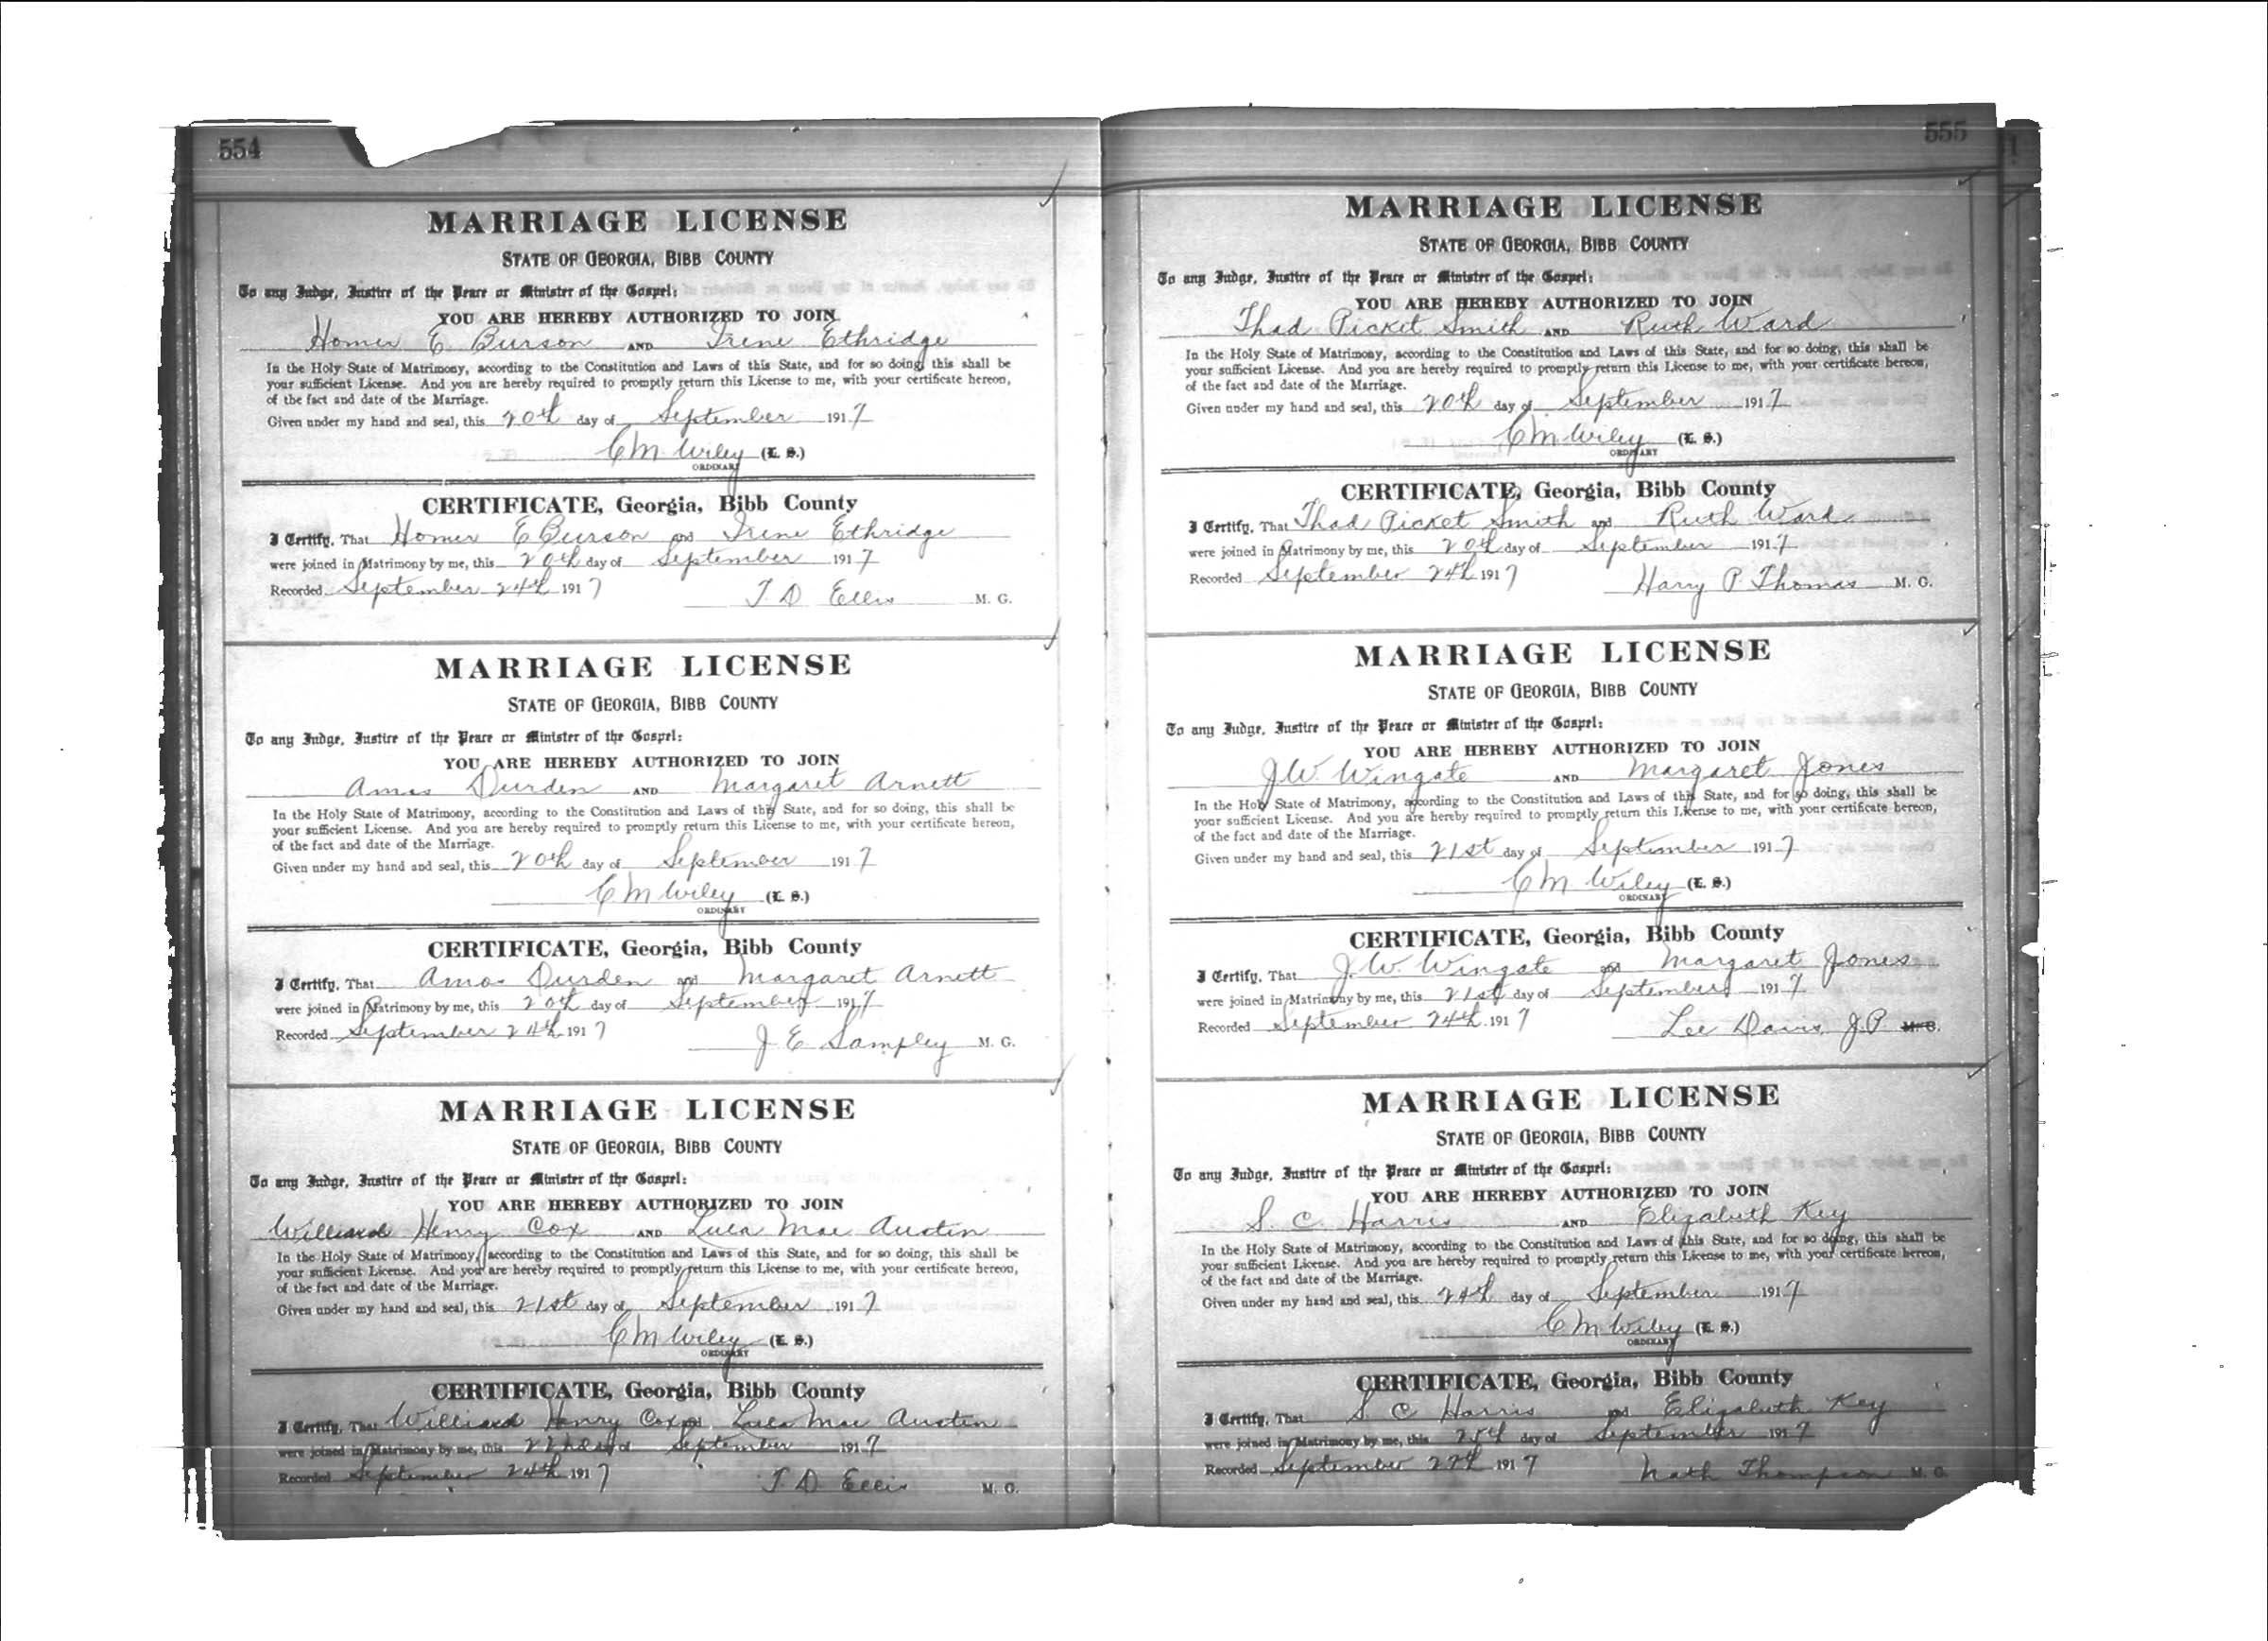 554
MARRIAGE LICENSE
STATE OF GEORGIA, BIBB COUNTY
To any Judge, Justice of the Peace or Minister of the Gospel:
YOU ARE HEREBY AUTHORIZED TO JOIN
Homer E Burson AND Irene Ethridge
In the Holy State of Matrimony, according to the Constitution and Laws of this State, and for so doing, this shall be
your sufficient License. And you are hereby required to promptly return this License to me, with your certificate hereon,
of the fact and date of the Marriage.
Given under my hand and seal, this 20th day of September 1917
C M Wiley (L. S.)
ORDINARY
CERTIFICATE, Georgia, Bibb County
I Certify, That Homer E Burson and Irene Ethridge
were joined in Matrimony by me, this 20th day of September 1917
Recorded September 24th 1917 T D Ellis M. G.
MARRIAGE LICENSE
STATE OF GEORGIA, BIBB COUNTY
To any Judge, Justice of the Peace or Minister of the Gospel:
YOU ARE HEREBY AUTHORIZED TO JOIN
Amos Durden AND Margaret Arnett
In the Holy State of Matrimony, according to the Constitution and Laws of this State, and for so doing, this shall be
your sufficient License. And you are hereby required to promptly return this License to me, with your certificate hereon,
of the fact and date of the Marriage.
Given under my hand and seal, this 20th day of September 1917
C M Wiley (L. S.)
ORDINARY
CERTIFICATE, Georgia, Bibb County
I Certify, That Amos Durden and Margaret Arnett
were joined in Matrimony by me, this 20th day of September 1917
Recorded September 24th 1917 J E Sampley M. G.
MARRIAGE LICENSE
STATE OF GEORGIA, BIBB COUNTY
To any Judge, Justice of the Peace or Minister of the Gospel:
YOU ARE HEREBY AUTHORIZED TO JOIN
Williard Henry Cox AND Lula Mae Austin
In the Holy State of Matrimony, according to the Constitution and Laws of this State, and for so doing, this shall be
your sufficient License. And you are hereby required to promptly return this License to me, with your certificate hereon,
of the fact and date of the Marriage.
Given under my hand and seal, this 21st day of September 1917
C M Wiley (L. S.)
ORDINARY
CERTIFICATE, Georgia, Bibb County
I Certify, That Williard Henry Cox and Lula Mae Austin
were joined in Matrimony by me, this 22nd day of September 1917
Recorded September 24th 1917 T. D. Ellis M. G.
555
MARRIAGE LICENSE
STATE OF GEORGIA, BIBB COUNTY
To any Judge, Justice of the Peace or Minister of the Gospel:
YOU ARE HEREBY AUTHORIZED TO JOIN
Thad Picket Smith AND Ruth Ward
In the Holy State of Matrimony, according to the Constitution and Laws of this State, and for so doing, this shall be
your sufficient License. And you are hereby required to promptly return this License to me, with your certificate hereon,
of the fact and date of the Marriage.
Given under my hand and seal, this 20th day of September 1917
C M Wiley (L. S.)
ORDINARY
CERTIFICATE, Georgia, Bibb County
I Certify, That Thad Picket Smith and Ruth Ward
were joined in Matrimony by me, this 20th day of September 1917
Recorded September 24th 1917 Harry P Thomas M. G.
MARRIAGE LICENSE
STATE OF GEORGIA, BIBB COUNTY
To any Judge, Justice of the Peace or Minister of the Gospel:
YOU ARE HEREBY AUTHORIZED TO JOIN
J. W. Wingate AND Margaret Jones
In the Holy State of Matrimony, according to the Constitution and Laws of this State, and for so doing, this shall be
your sufficient License. And you are hereby required to promptly return this License to me, with your certificate hereon,
of the fact and date of the Marriage.
Given under my hand and seal, this 21st day of September 1917
C M Wiley (L. S.)
ORDINARY
CERTIFICATE, Georgia, Bibb County
I Certify, That J. W. Wingate and Margaret Jones
were joined in Matrimony by me, this 21st day of September 1917
Recorded September 24th 1917 Lee Davis J. P. M. G.
MARRIAGE LICENSE
STATE OF GEORGIA, BIBB COUNTY
To any Judge, Justice of the Peace or Minister of the Gospel:
YOU ARE HEREBY AUTHORIZED TO JOIN
S. C. Harris AND Elizabeth Key
In the Holy State of Matrimony, according to the Constitution and Laws of this State, and for so doing, this shall be
your sufficient License. And you are hereby required to promptly return this License to me, with your certificate hereon,
of the fact and date of the Marriage.
Given under my hand and seal, this 24th day of September 1917
C M Wiley (L. S.)
ORDINARY
CERTIFICATE, Georgia, Bibb County
I Certify, That S C Harris and Elizabeth Key
were joined in Matrimony by me, this 25th day of September 1917
Recorded September 27th 1917 Nath Thompson M. G.